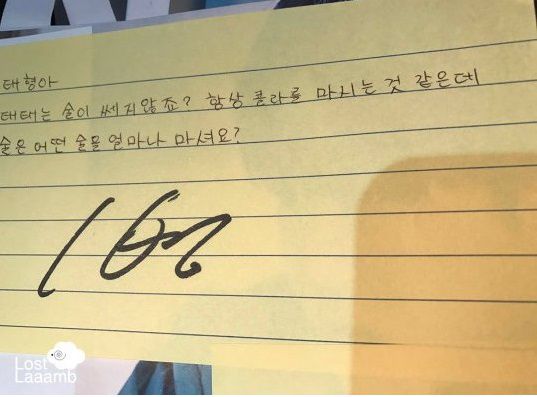 태형아
태태는 술이 쎄지않죠? 항상 콜라를 마시는 것 같은데
술은 어떤 술을 얼마나 마셔요?
Lost
Laaamb